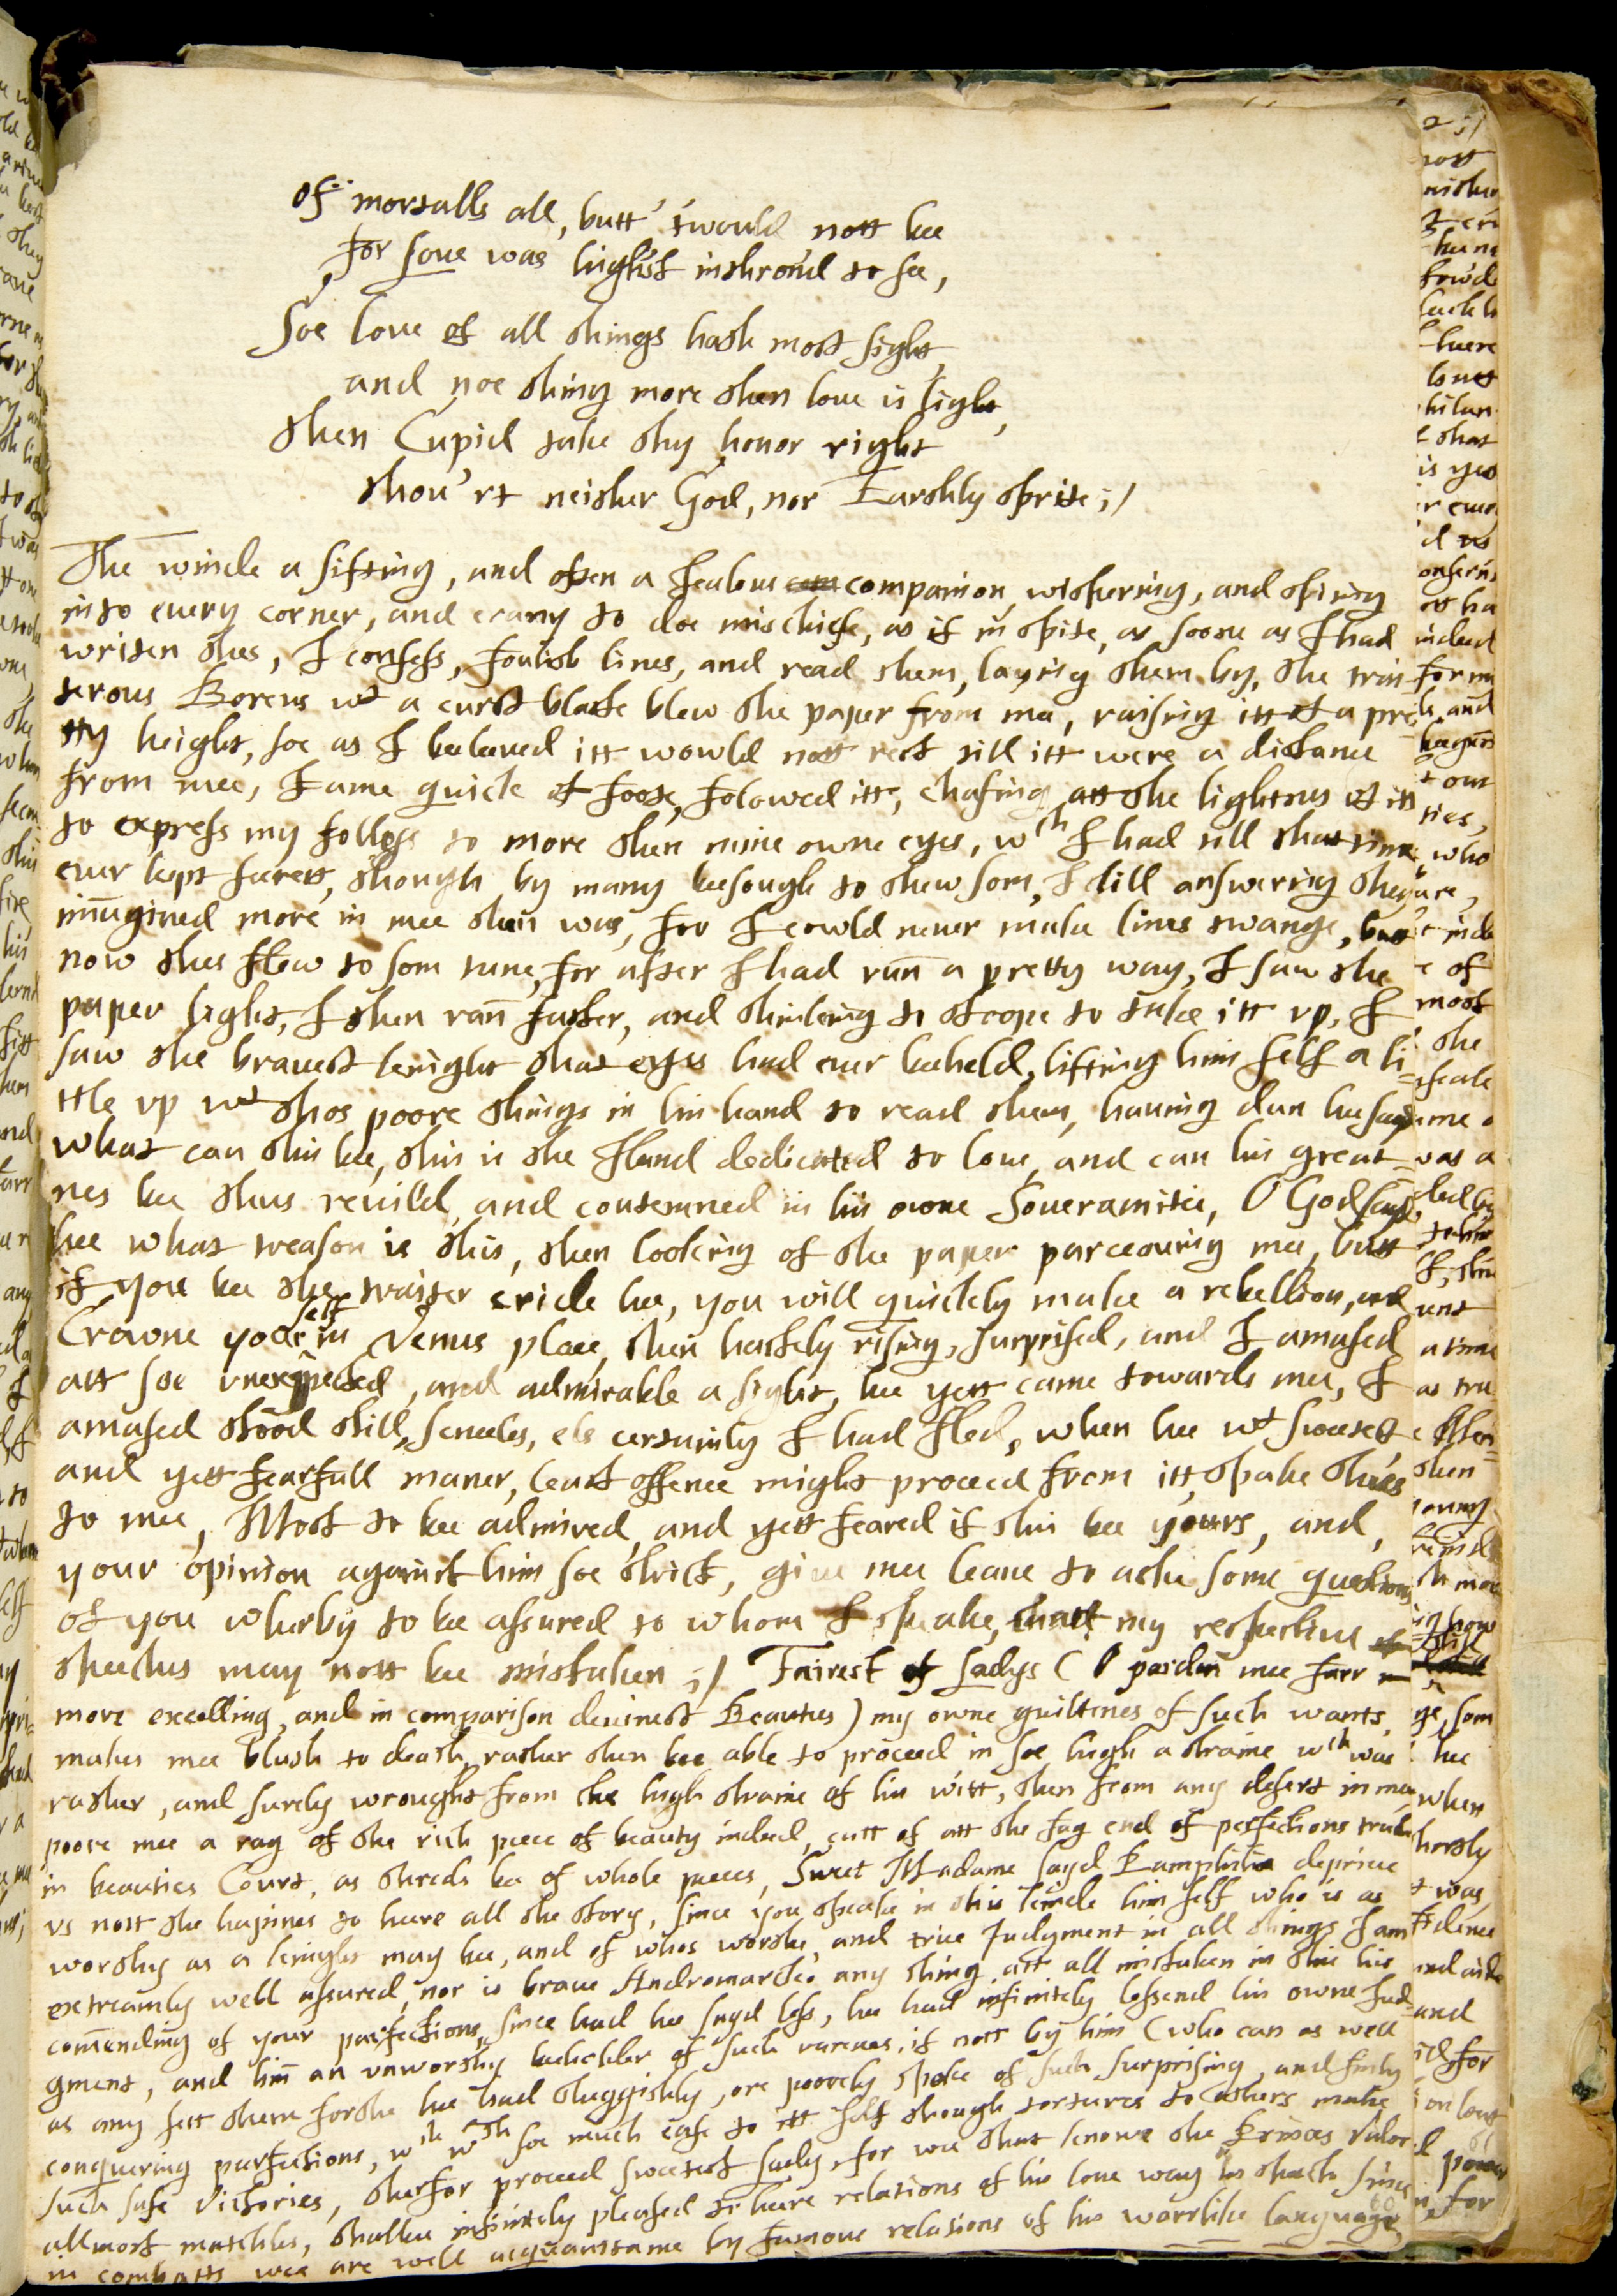 of mortalls all, butt 'twould nott bee
for Jove was high'st inthron'd to see,
Soe love of all things hath most sight
and noe thing more then love is light,
then Cupid take thy honor right
thou'rt neither God, nor Earthly sprite;/
The winde a sifting, and often a Jealous companion, wispering, and spiing
into every corner, and crany to doe mischiefe, as if in spite, as soone as I had
writen thes, I confess, foulish lines, and read them, laying them by, the
terous Boreus wt a curst blaste blew the paper from mee, raising itt of a pre
tty height, soe as I beeleeved itt wowld nott rest till itt were a distance
from mee, I ame quick of foote, folowed itt, chafing att the lightnes of itt
to express my folleys to more then mine owne eyes, wch I had till that time
ever kept secrett, though by many beesough to shew som, I still answering they
immagined more in mee then was, for I cowld never make lines twange, butt
now thes flew to som tune, for after I had runn a pretty way, I saw the
paper light, I then rann faster, and thinking to stoope to take itt up, I
saw the bravest knight that eyes had ever beeheld, lifting him self a li
ttle up wt thos poore things in his hand to read them, having dun hee sayd
what can this bee, this is the Iland dedicated to love, and can his great
nes bee thus revil'd, and contemned in his owne Soverainitie, O God sayd
hee what treason is this, then looking of the paper parceaving mee, butt
if you bee the traiter cride hee, you will quickly make a rebellion, and
Crowne your self in Venus place, then hastely rising, surprised, and I amased
att soe unexpected, and admirable a sight, hee yett came towards mee, I
amased stood still, senceles, els certainly I had fled, when hee wt sweetest
and yett fearfull maner, least offence might proceed from itt, spake thus
to mee, Most to bee admired, and yett feared if this bee yours, and
your opinion against him soe strict, give mee leave to aske some questions
of you wherby to bee assured to whom I speake, thatt my respective
speeches may nott bee mistaken;/ Fairest of Ladys (O pardon mee farr
more excelling, and in comparison devinest Beauties) my owne guiltines of such wants,
makes mee blush to death, rather then bee able to proceed in soe high a straine wch was
rather, and surely wrought from the high straine of his witt, then from any desert in mee
poore mee a rag of the rich peece of beauty indeed, cutt of att the fag end of perfections
in beauties Court, as shreds bee of whole peeces, Sweet Madame sayd Pamphilia deprive
us nott the hapines to heere all the story, since you speake in this kinde him self who is as
worthy as a knight may bee, and of whos worthe, and true Judgment in all things I am
extreamly well assured, nor is brave Andromarcko any thing att all mistaken in this his
comending of your parfections, since had hee sayd less, hee had infinitely lessend his owne Jud
gment, and him an unworthy beeholder of such vartues, if nott by him (who can as well
as any sett them forthe hee had sluggishly, ore poorely spoke of such surprising, and finly
conquering parfections, wch wth soe much ease to itt self though tortures to others make
such safe victories, therfor proceed sweetest Lady, for wee that knowe the Princes valor
allmost matchles, shallbee infinitely pleased to heare relations of his love way hee therto since
in combatts wee are well acquaintame by famous relasions of his warrlike language,